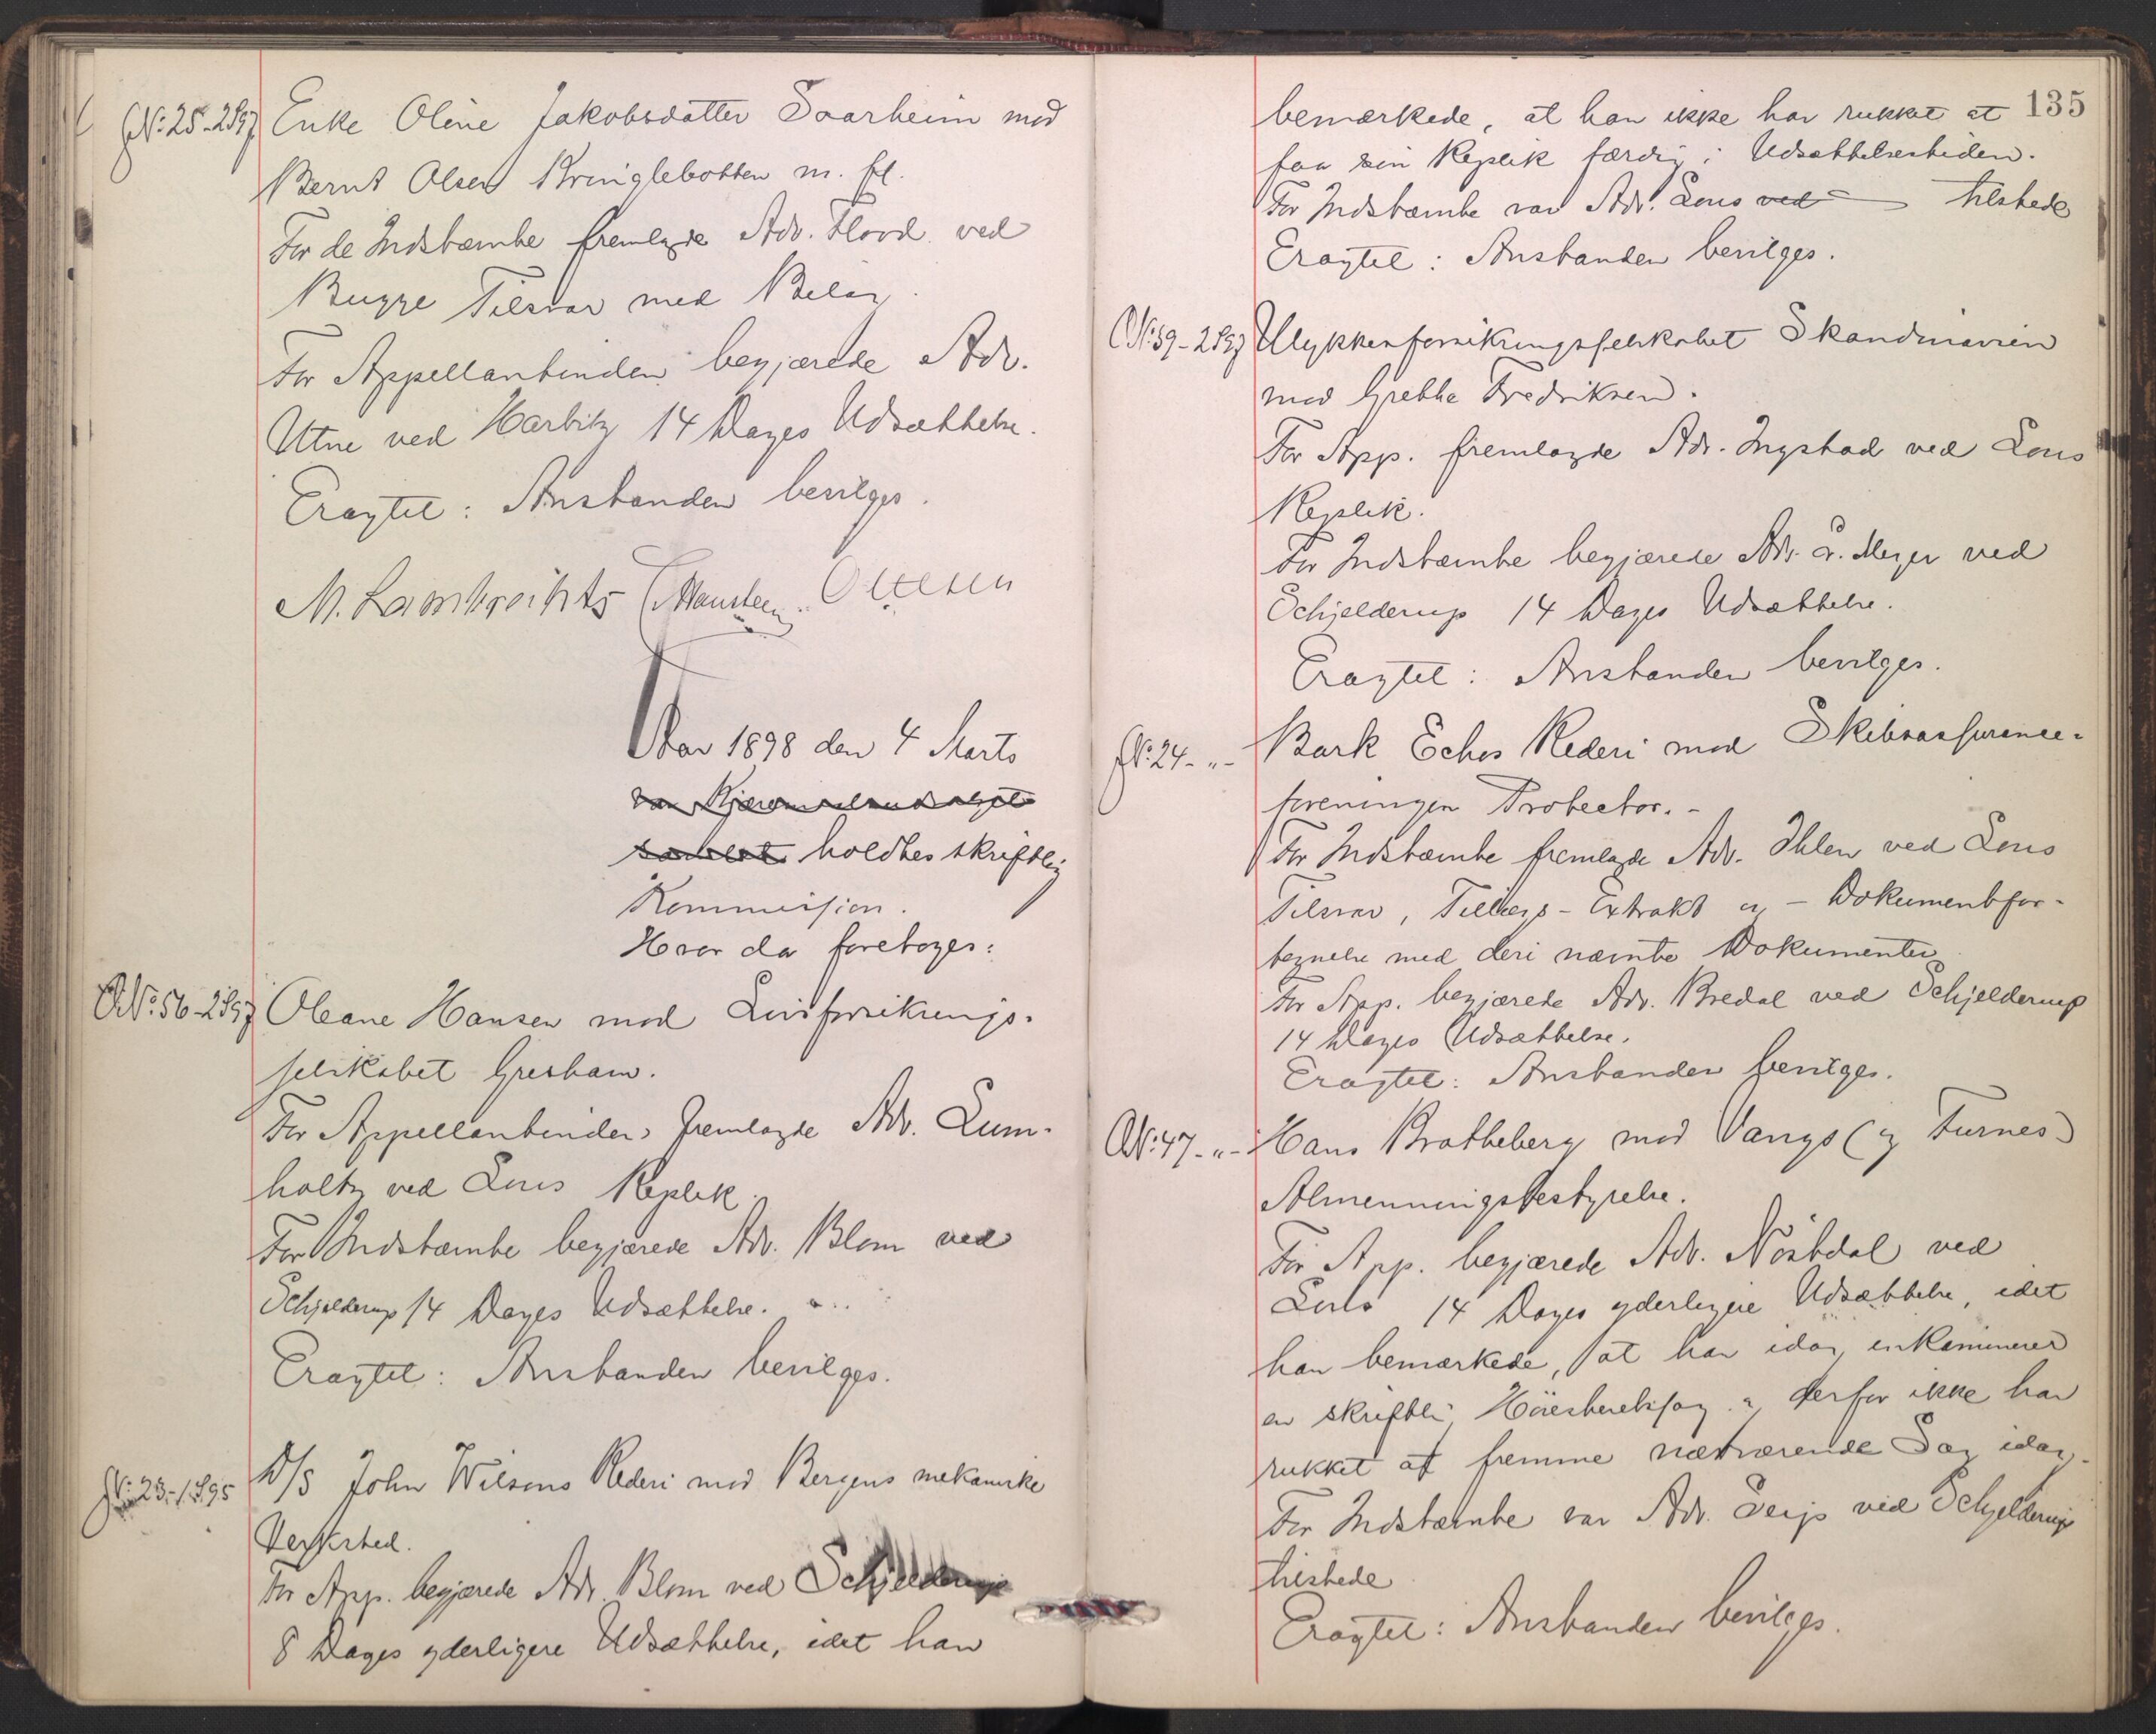 No: 25-2/97 Enke Oline Jakobsdatter Saarheim mod
Bernt Olsen Kringlebotten m. fl.
For de Indstævnte fremlagde Adv. Flood ved
Bugge Tilsvar med Bilag.
For Appellantinden begjærede Adv.
Utne ved Harbitz 14 Dages Udsættelse.
Eragtet: Anstanden bevilges.
M. Lambrechts Ottesen
Aar 1898 den 4 Marts
holdtes skriftlig
Kommission.
Hvor da foretoges:
No: 56-2/97 Oleane Hansen mod Livsforsikrings-
selskabet Gresham.
For Appellantinden fremlagde Adv. Lum-
holtz ved Lous Replik.
For Indstævnte begjærede Adv. Blom ved
Schjelderup 14 Dages Udsættelse.
Eragtet: Anstanden bevilges.
No: 23-1/95 D/S John Wilsons Rederi mod Bergens mekaniske
Verksted.
For App. begjærede Adv. Blom ved Schjelderup
8 Dages yderligere Udsættelse, idet han
135
bemærkede, at han ikke har rukket at
faa sin Replik færdig i Udsættelsestiden.
For Indstævnte var Adv. Lous ved tilstede
Eragtet: Anstanden bevilges.
No: 59-2/97 Ulykkesforsikringsselskabet Skandinavien
mod Grethe Fredriksen.
For App. fremlagde Adv. Ingstad ved Lous
Replik.
For Indstævnte begjærede Adv. Meyer ved
Schjelderup 14 Dages Udsættelse.
Eragtet: Anstanden bevilges.
No: 24-"- Bark Echos Rederi mod Skibsassurance-
foreningen Protector.-
For Indstævnte fremlagde Adv. Ihlen ved Lous
Tilsvar, Tillægs-Extrakt og - Dokumentfor-
tegnelse med deri nævnte Dokumenter
For App. begjærede Adv. Bredal ved Schjelderup
14 Dages Udsættelse.
Eragtet: Anstanden bevilges.
No: 47-"- Hans Bratheberg mod Vangs (og Furnes)
Almenningsbestyrelse.
For App. begjærede Adv. Nöstdal ved
Lous 14 Dages yderligere Udsættelse, idet
han bemærkede, at han idag inkaminerer
en skriftlig Höiesteretssag og derfor ikke har
rukket at fremme nærværende Sag idag.
For Indstævnte var Adv. Seip ved Schjelderup
tilstede
Eragtet: Anstanden bevilges.